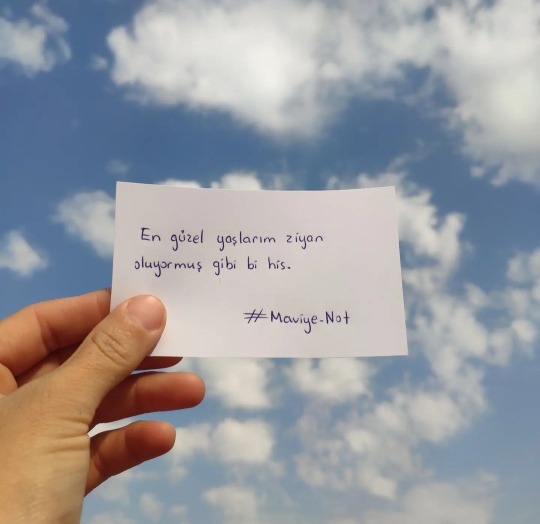 En güzel yaşlarım ziyan
oluyormuş gibi bi his.
#Maviye-Not